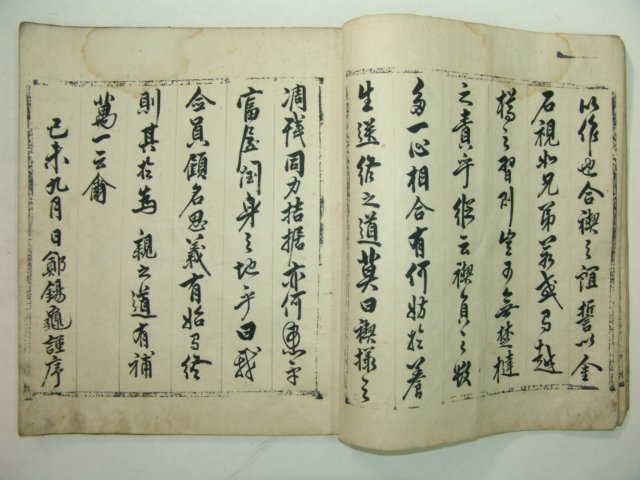 以作也合禊之誼誓以金
石視如兄弟若或有越
之習則豈可無楚撻
之責乎縱云禊員之數
多一心相合有何妨於養
生送終之道莫曰禊樣之
凋殘同力拮据亦何患乎
富屋潤身之地乎曰我
合員顧名思義有始有終
則其於為親之道有補
萬一云爾
己未九月日鄭錫龜謹序